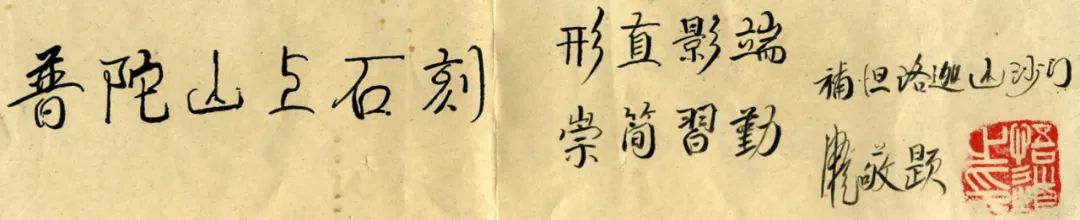 普陀山上石刻
形直影端
崇简習勤
補怛路迦山沙门
敬题